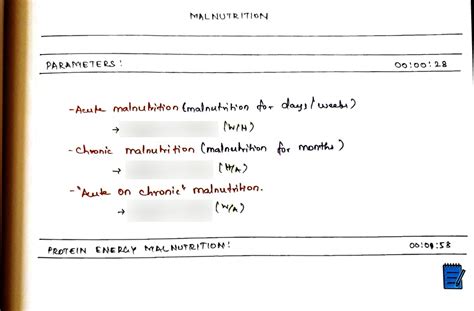 MALNUTRITION
PARAMETERS: 00:00:28
- Acute malnutrition (malnutrition for days / weeks)
→ (W/H)
- Chronic malnutrition (malnutrition for months)
→ (H/A)
- "Acute on chronic" malnutrition.
→ (W/A)
PROTEIN ENERGY MALNUTRITION: